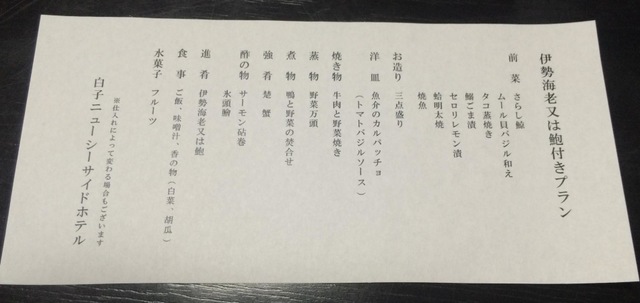 伊勢海老又は鮑付きプラン
前菜 さらし鯨
ムール貝バジル和え
タコ蒸焼き
鰯ごま漬
セロリレモン漬
蛤明太焼
焼魚
お造り 三点盛り
洋皿 魚介のカルパッチョ
（トマトバジルソース）
焼き物 牛肉と野菜焼き
蒸物 野菜万頭
煮物 鴨と野菜の焚合せ
強肴 楚蟹
酢の物 サーモン砧巻
氷頭膾
進肴 伊勢海老又は鮑
食事 ご飯、味噌汁、香の物（白菜、胡瓜）
水菓子 フルーツ
※仕入れによって変わる場合もございます
白子ニューシーサイドホテル